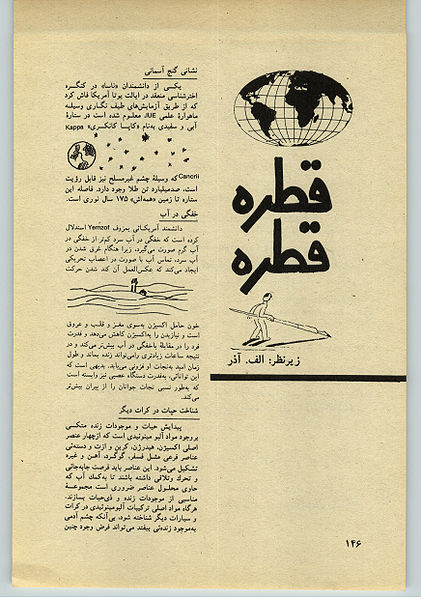 نشانی گنج آسمانی
یکی از دانشمندان «ناسا» در کنگرهٔ
اخترشناسی منعقد در ایالت یوتا آمریکا فاش کرد
که از طریق آزمایش‌های طیف نگاری وسیلهٔ
ماهوارهٔ علمی JUE معلوم شده است در ستارهٔ
آبی و سفیدی به‌نام «کاپا کانکری» Kappa
Cancrii که وسیلهٔ چشم غیرمسلح نیز قابل رؤیت
است، صدمیلیارد تن طلا وجود دارد. فاصله این
ستاره تا زمین «همه‌اش» ۱۷۵ سال نوری است.
خفگی در آب
دانشمند آمریکائی بمزوف Yemzof استدلال
کرده است که خفگی در آب سرد کم‌تر از خفگی در
آب گرم صورت می‌گیرد، زیرا هنگام غرق شدن در
آب سرد، تماس آب با صورت در اعصاب تحریکی
ایجاد می‌کند که عکس‌العمل آن کند شدن حرکت
خون حامل اکسیژن به‌سوی مغز و قلب و عروق
است و نیازبدن را به‌اکسیژن کاهش می‌دهد و قدرت
فرد را در مقابلهٔ باخفگی در آب بیش‌تر می‌کند و در
نتیجه ساعات زیادتری رامی‌تواند زنده بماند و طول
زمان امید به‌نجات او فزونی می‌یابد. بدیهی است که
این توانائی، به‌قدرت دستگاه عصبی نیز وابسته است
که به‌طور نسبی نجات جوانان را از پیران بیش‌تر
می‌کند.
شناخت حیات در کرات دیگر
پیدایش حیات و موجودات زنده متکسی
بروجود مواد آلبومینوئیدی است که ازچهار عنصر
اصلی اکسیژن، هیدرژن، کربن و ازت و دسته‌ئی
عناصر فرعی مثل فسفر، گوگرد، آهن و غیره
تشکیل می‌شود. این عناصر باید فرصت جابه‌جائی
و تحرک وتلاقی داشته باشند تا به‌کمک آب که
حاوی محلول عناصر ضروری است مجموعهٔ
مناسبی از موجودات زنده و ذی‌حیات بسازند.
هرگاه مواد اصلی ترکیبات آلبومینوئیدی در کرات
و سیارات دیگر شناخته شود، بی‌آنکه چشم آدمی
به‌موجود زنده‌ئی بیفتد می‌تواند فرض وجود چنین
قطره
قطره
زیرنظر: الف. آذر
۱۴۶